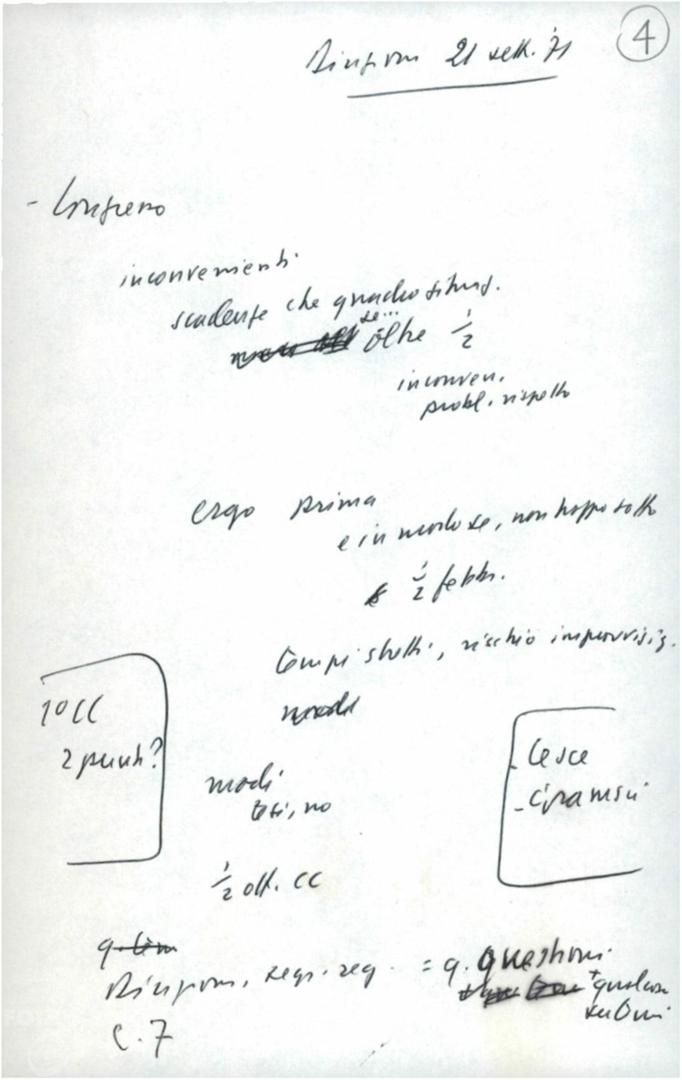 4
Direzione 21 sett. '71
- Congresso
inconvenienti
scadenze che quadro situaz.
se...
oltre 1/2
inconven.
probl. rispetto
ergo prima
e in modo se, non troppo sotto
1/2 febbr.
tempi stretti, rischio improvvisaz.
modi
1º CC
2 punti?
modi
tesi, no
- Cesce
1/2 ott. CC
Direzione, segr. reg. = q. questioni
+ qualcosa
c. 7